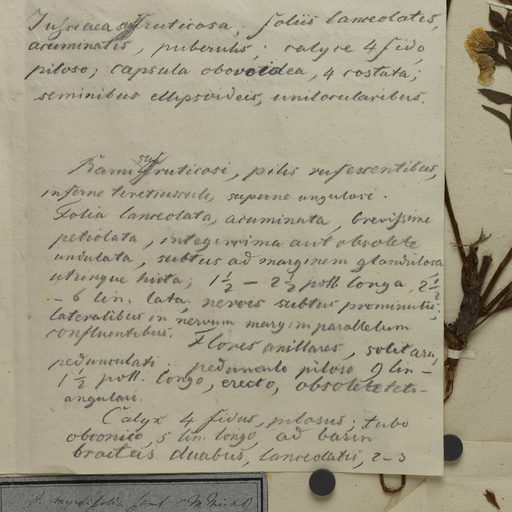 Jussiaea suffruticosa; foliis lanceolatis,
acuminatis, puberulis; calyce 4 fido,
piloso; capsula obovoidea, 4 costata;
seminibus ellipsoideis, unilocularibus.
Rami suffruticosi, pilis rufescentibus,
inferne teretiusculi, superne angulosi.
Folia lanceolata, acuminata, brevissime
petiolata, integerrima aut obsolete
undulata, subtus ad marginem glandulosa,
utrinque hirta; 1 1/2 - 2 1/2 poll. longa, 2 1/2
- 6 lin. lata, nervis subtus prominulis;
lateralibus in nervum margini parallelum
confluentibus. Flores axillares, solitarii,
pedunculati; pedunculo piloso 9 lin -
1 1/2 poll. longo, erecto, obsolete tetr-
angulari.
Calyx 4 fidus, pilosus; tubo
obconico, 5 lin. longo, ad basin
bracteis duabus, lanceolatis, 2-3